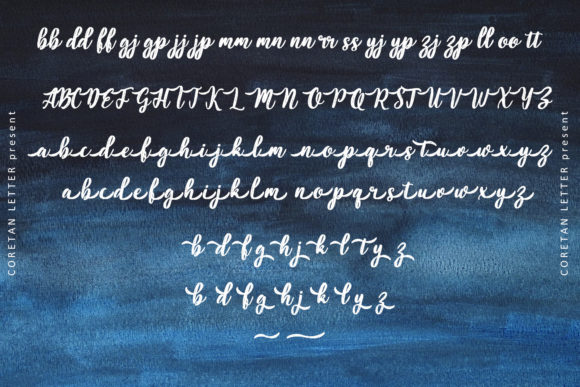 bb dd ff gj gp jj jp mm mn nn rr ss yj yp zj zp ll oo tt
A B C D E F G H I J K L M N O P Q R S T U V W X Y Z
a b c d e f g h i j k l m n o p q r s t u v w x y z
a b c d e f g h i j k l m n o p q r s t u v w x y z
b d f g h j k l t y z
b d f g h j k l y z
CORETAN LETTER present
CORETAN LETTER present